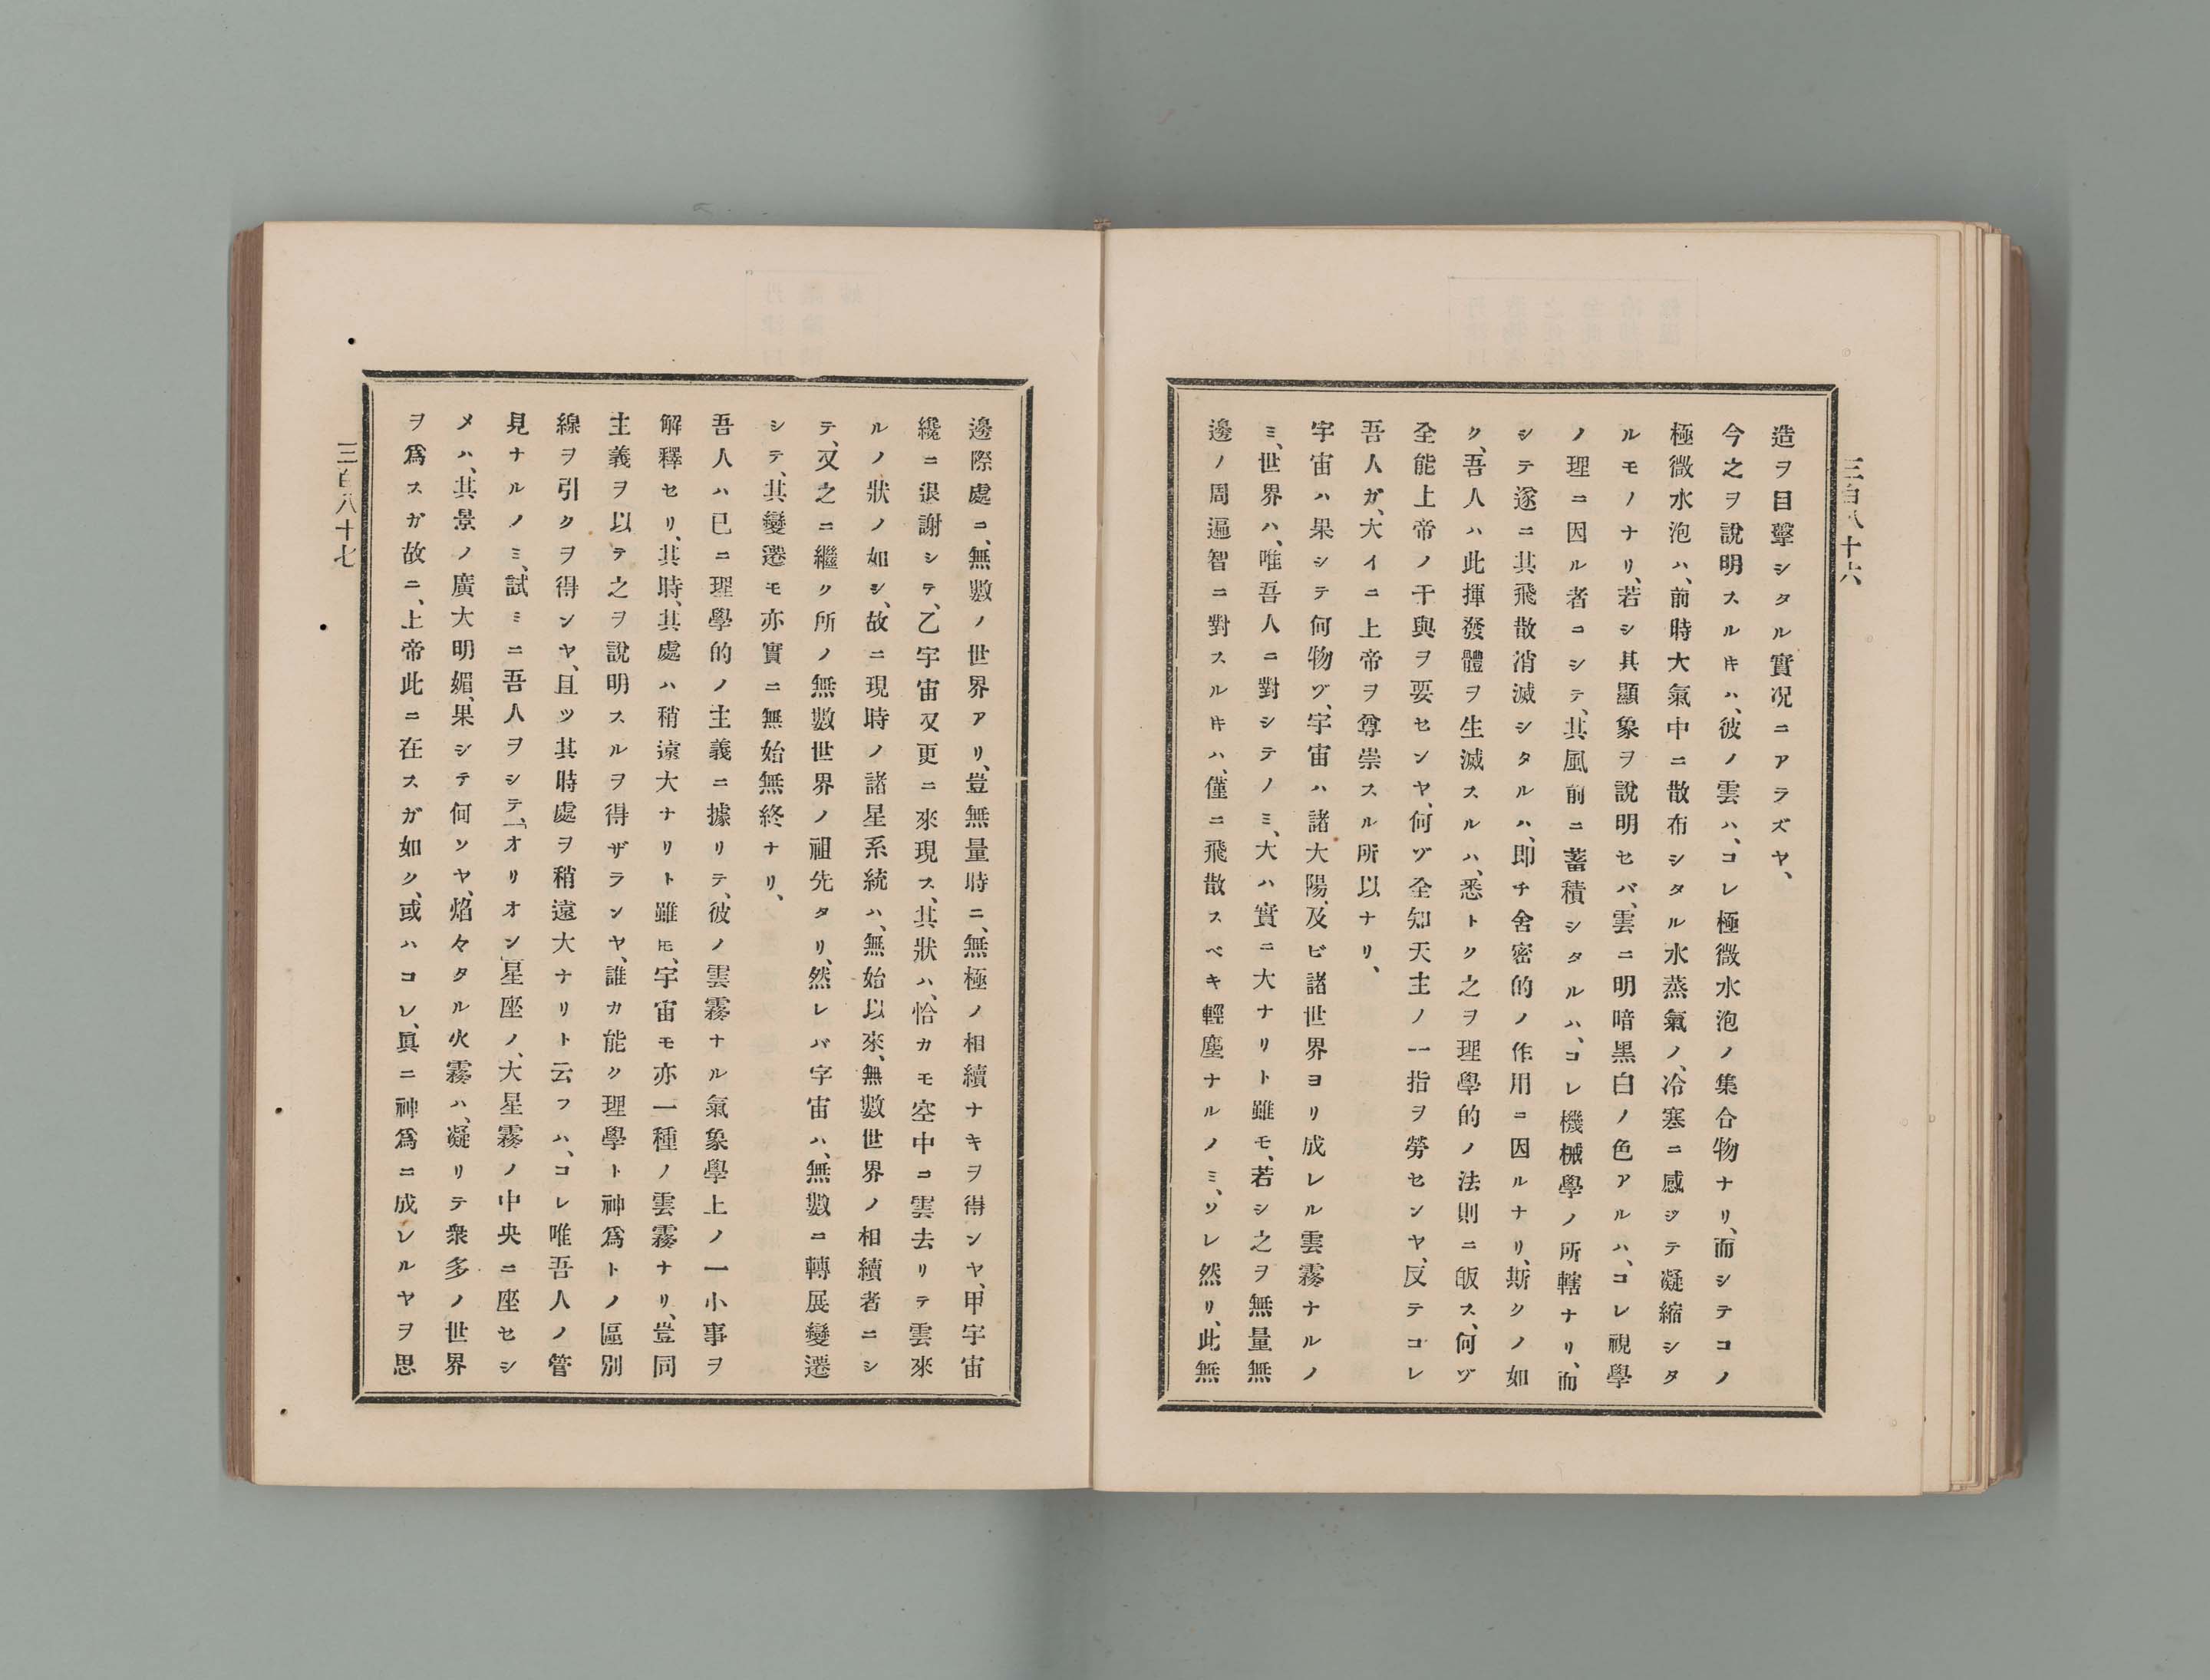 三百八十六
造ヲ目擊シタル實況ニアラズヤ、
今之ヲ說明スルキハ、彼ノ雲ハ、コレ極微水泡ノ集合物ナリ、而シテコノ
極微水泡ハ、前時大氣中ニ散布シタル水蒸氣ノ、冷塞ニ感ジテ凝縮シタ
ルモノナリ、若シ其顯象ヲ說明セバ、雲ニ明暗黑白ノ色アルハ、コレ視學
ノ理ニ因ル者コシテ、其風前ニ蓄積シタルハ、コレ機械學ノ所轄ナリ、而
シテ遂ニ其飛散消滅シタルハ、即チ舍密的ノ作用コ因ルナリ、斯クノ如
ク、吾人ハ此揮發體ヲ生滅スルハ、悉トク之ヲ理學的ノ法則ニ皈ス、何ゾ
全能上帝ノ干與ヲ要センヤ、何ゾ全知天主ノ一指ヲ勞センヤ、反テコレ
吾人ガ、大イニ上帝ヲ尊崇スル所以ナリ、
宇宙ハ果シテ何物ゾ、宇宙ハ諸大陽、及ビ諸世界ヨリ成レル雲霧ナルノ
ミ、世界ハ、唯吾人ニ對シテノミ、大ハ實ニ大ナリト雖モ、若シ之ヲ無量無
邊ノ周遍智ニ對スルキハ、僅ニ飛散スベキ輕塵ナルノミ、ソレ然リ、此無
邊際處コ、無數ノ世界アリ、豈無量時ニ、無極ノ相續ナキヲ得ンヤ、甲宇宙
纔ニ退謝シテ、乙宇宙又更ニ來現ス、其狀ハ、恰カモ空中コ雲去リテ雲來
ルノ狀ノ如シ、故ニ現時ノ諸星系統ハ、無始以來、無數世界ノ相續者ニシ
テ、又之ニ繼ク所ノ無數世界ノ祖先タリ、然レバ宇宙ハ、無數ニ轉展變遷
シテ、其變遷モ亦實ニ無始無終ナリ、
吾人ハ已ニ理學的ノ主義ニ據リテ、彼ノ雲霧ナル氣象學上ノ一小事ヲ
解釋セリ、其時、其處ハ稍遠大ナリト雖モ、宇宙モ亦一種ノ雲霧ナリ、豈同
主義ヲ以テ之ヲ說明スルヲ得ザランヤ、誰カ能ク理學ト神爲トノ區別
線ヲ引クヲ得ンヤ、且ツ其時處ヲ稍遠大ナリト云フハ、コレ唯吾人ノ管
見ナルノミ、試ミニ吾人ヲシテ、「オリオン」星座ノ、大星霧ノ中央ニ座セシ
メハ、其景ノ廣大明媚、果シテ何ソヤ、焰々タル火霧ハ、凝リテ衆多ノ世界
ヲ爲スガ故ニ、上帝此ニ在スガ如ク、或ハコレ、眞ニ神爲ニ成レルヤヲ思
三百八十七